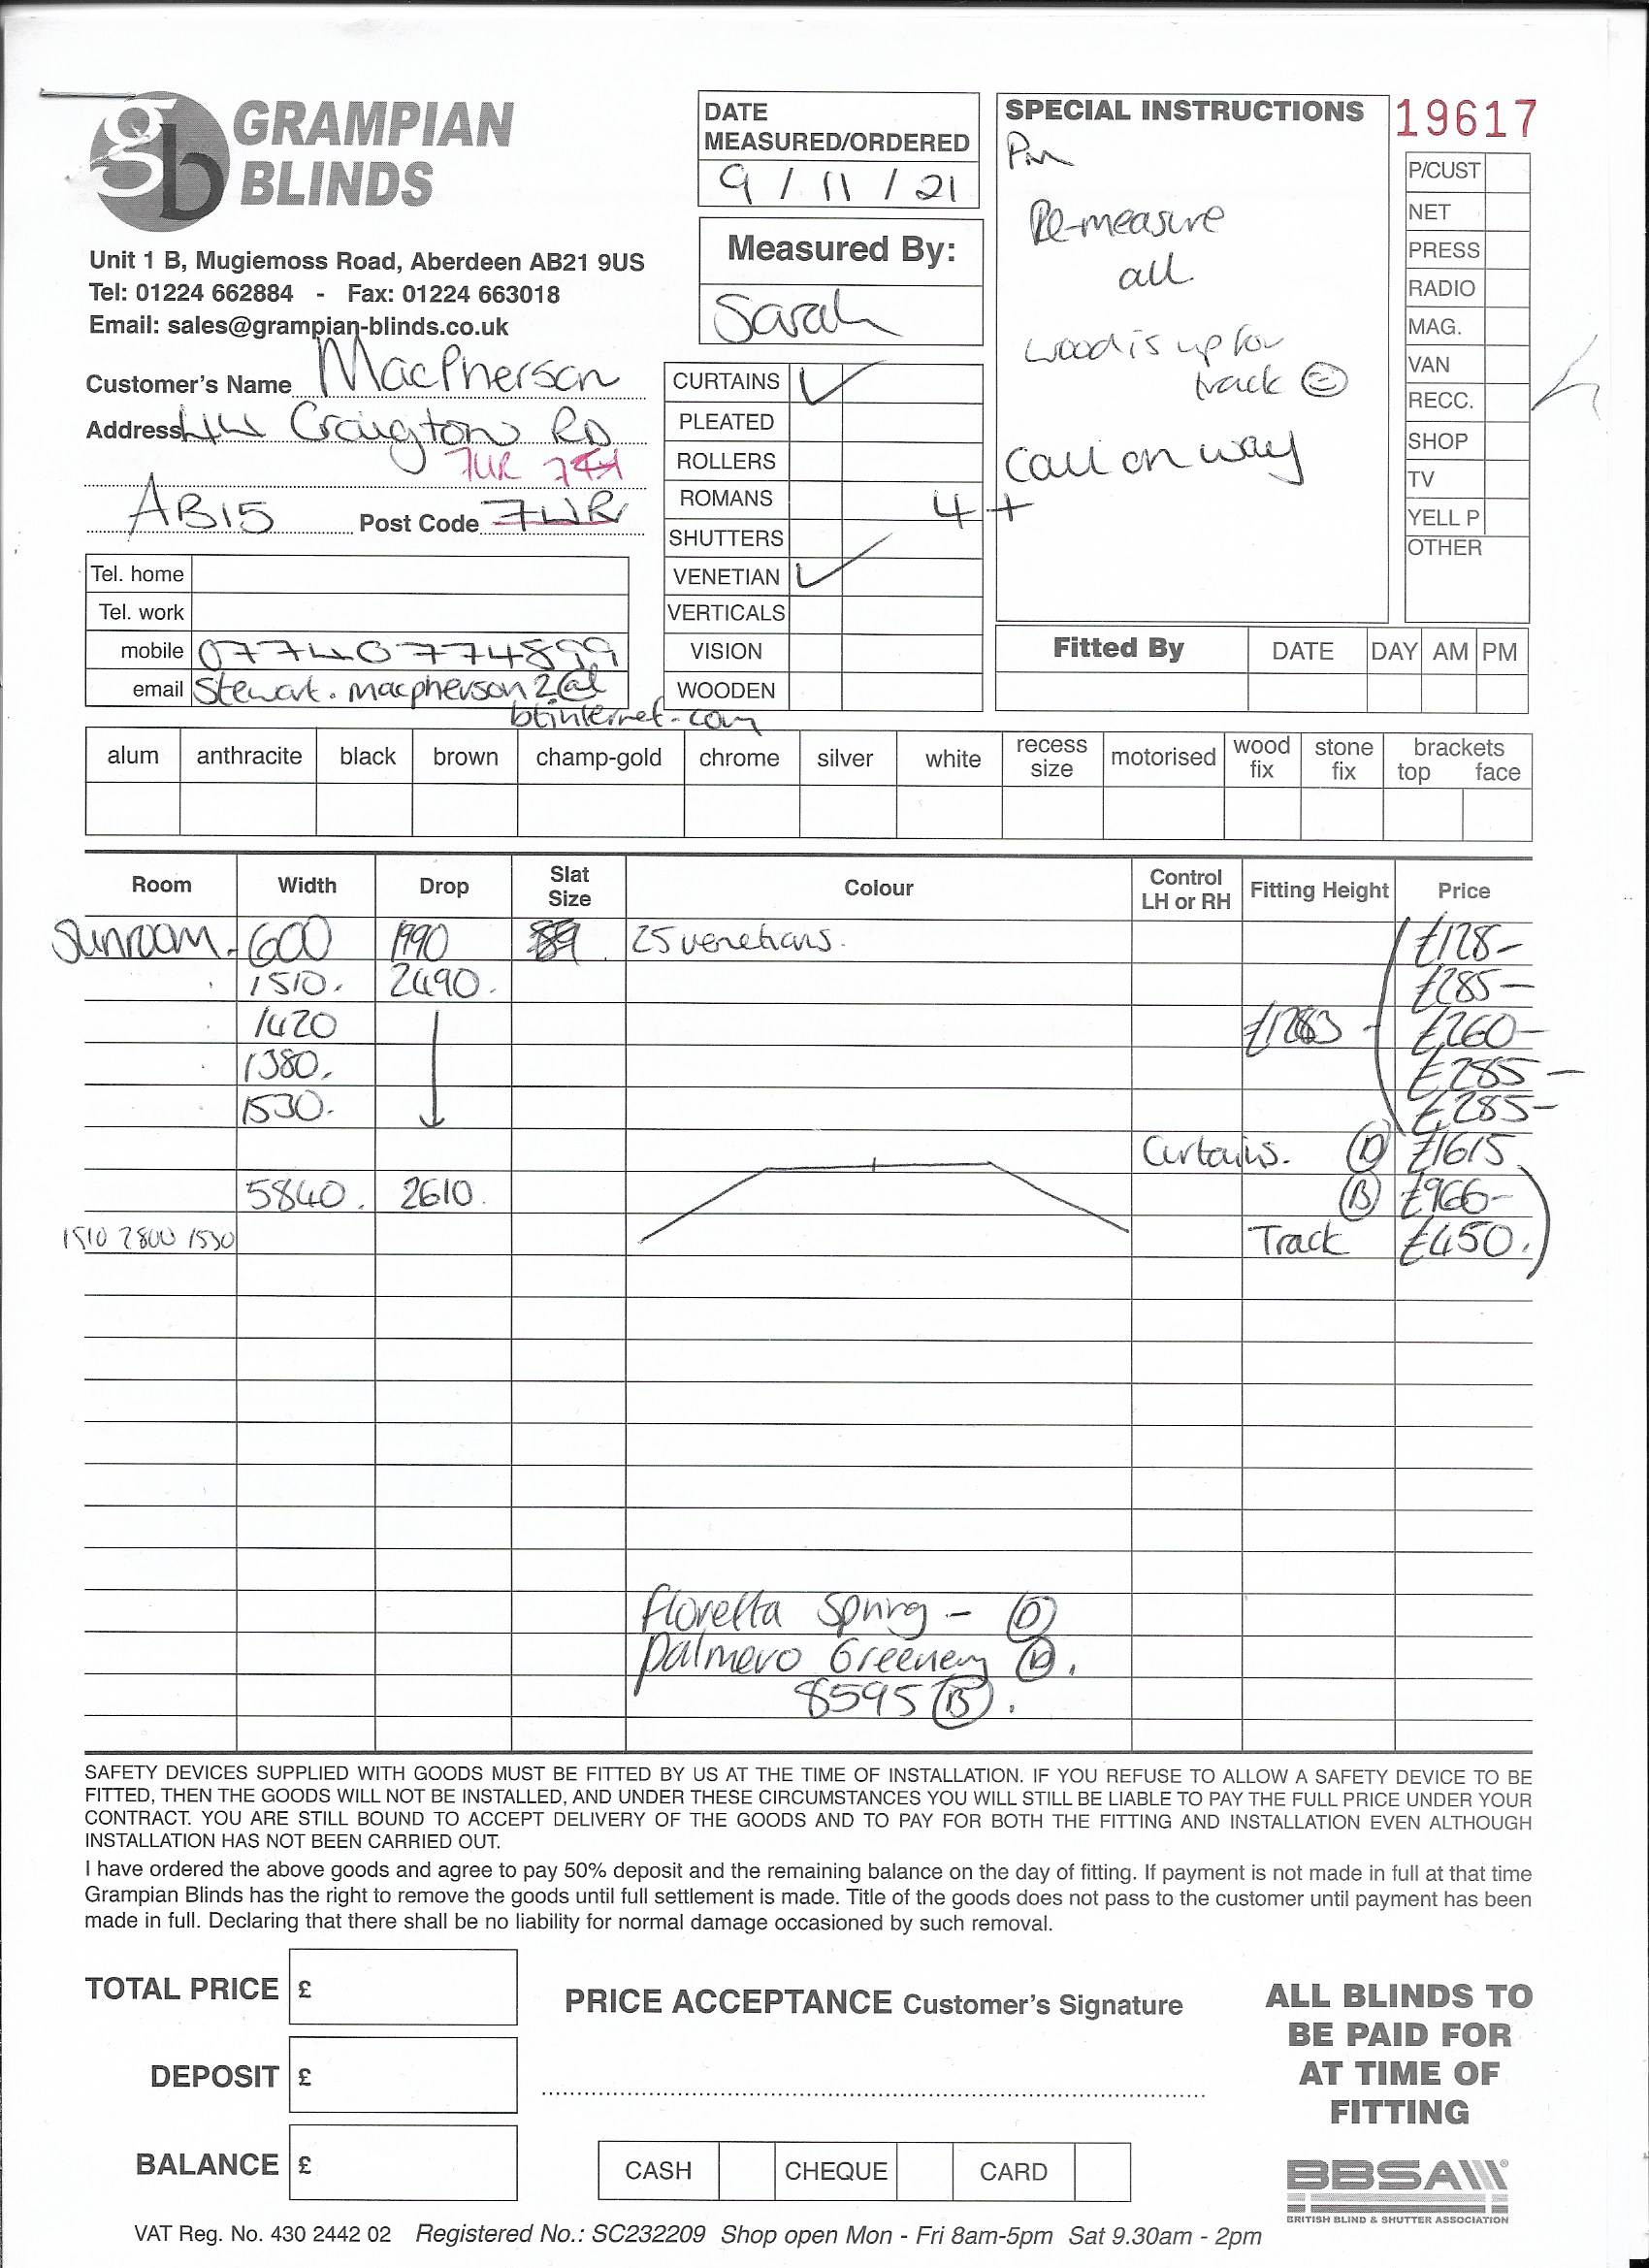 gb GRAMPIAN
BLINDS
Unit 1 B, Mugiemoss Road, Aberdeen AB21 9US
Tel: 01224 662884 - Fax: 01224 663018
Email: sales@grampian-blinds.co.uk
DATE
MEASURED/ORDERED
9 / 11 / 21
Measured By:
Sarah
SPECIAL INSTRUCTIONS
Pm
Re-measure
all
wood is up for
track
Call on way
4+
19617
P/CUST
NET
PRESS
RADIO
MAG.
VAN
RECC.
SHOP
TV
YELL P
OTHER
Customer's Name MacPherson
Address 44 Craigton RD
7UR
AB15 Post Code
Tel. home
Tel. work
mobile 07740774899
email Stewart.macpherson2@
btinternet.com
CURTAINS ✓
PLEATED
ROLLERS
ROMANS
SHUTTERS
VENETIAN ✓
VERTICALS
VISION
WOODEN
Fitted By DATE DAY AM PM
alum anthracite black brown champ-gold chrome silver white recess size motorised wood fix stone fix brackets top face
Room Width Drop Slat Size Colour Control LH or RH Fitting Height Price
Sunroom. 600 1990 25 venetians. £128-
1510. 2490. £285-
1420 £260-
1380. £285-
1530. £285-
Curtains. (D) £1615
5840. 2610. (B) £966-
1510 2800 1530 Track £450.
Floretta Spring - (D)
Palmero Greenery (D).
8595 (B).
SAFETY DEVICES SUPPLIED WITH GOODS MUST BE FITTED BY US AT THE TIME OF INSTALLATION. IF YOU REFUSE TO ALLOW A SAFETY DEVICE TO BE
FITTED, THEN THE GOODS WILL NOT BE INSTALLED, AND UNDER THESE CIRCUMSTANCES YOU WILL STILL BE LIABLE TO PAY THE FULL PRICE UNDER YOUR
CONTRACT. YOU ARE STILL BOUND TO ACCEPT DELIVERY OF THE GOODS AND TO PAY FOR BOTH THE FITTING AND INSTALLATION EVEN ALTHOUGH
INSTALLATION HAS NOT BEEN CARRIED OUT.
I have ordered the above goods and agree to pay 50% deposit and the remaining balance on the day of fitting. If payment is not made in full at that time
Grampian Blinds has the right to remove the goods until full settlement is made. Title of the goods does not pass to the customer until payment has been
made in full. Declaring that there shall be no liability for normal damage occasioned by such removal.
TOTAL PRICE £
DEPOSIT £
BALANCE £
PRICE ACCEPTANCE Customer's Signature
CASH CHEQUE CARD
ALL BLINDS TO
BE PAID FOR
AT TIME OF
FITTING
BBSA
BRITISH BLIND & SHUTTER ASSOCIATION
VAT Reg. No. 430 2442 02 Registered No.: SC232209 Shop open Mon - Fri 8am-5pm Sat 9.30am - 2pm